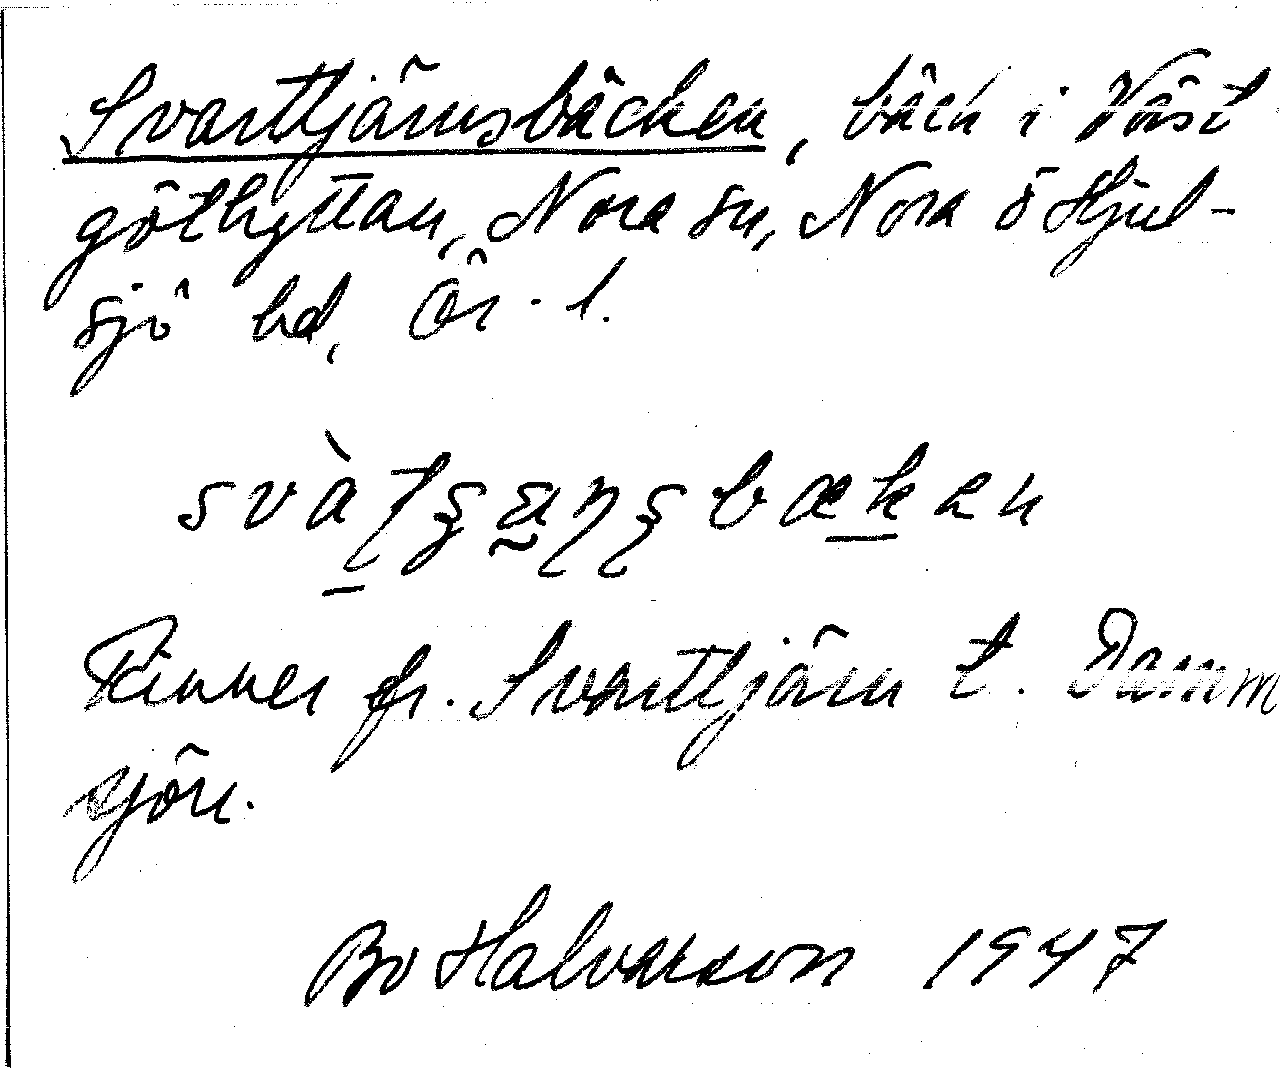 Svarttjärnsbäcken, bäck i Väst
göthyttan, Nora sn, Nora ö Hjul-
sjö hd, Ör. l.
Rinner fr. Svarttjärn t. Damm
sjön.
Bo Halvarson 1947